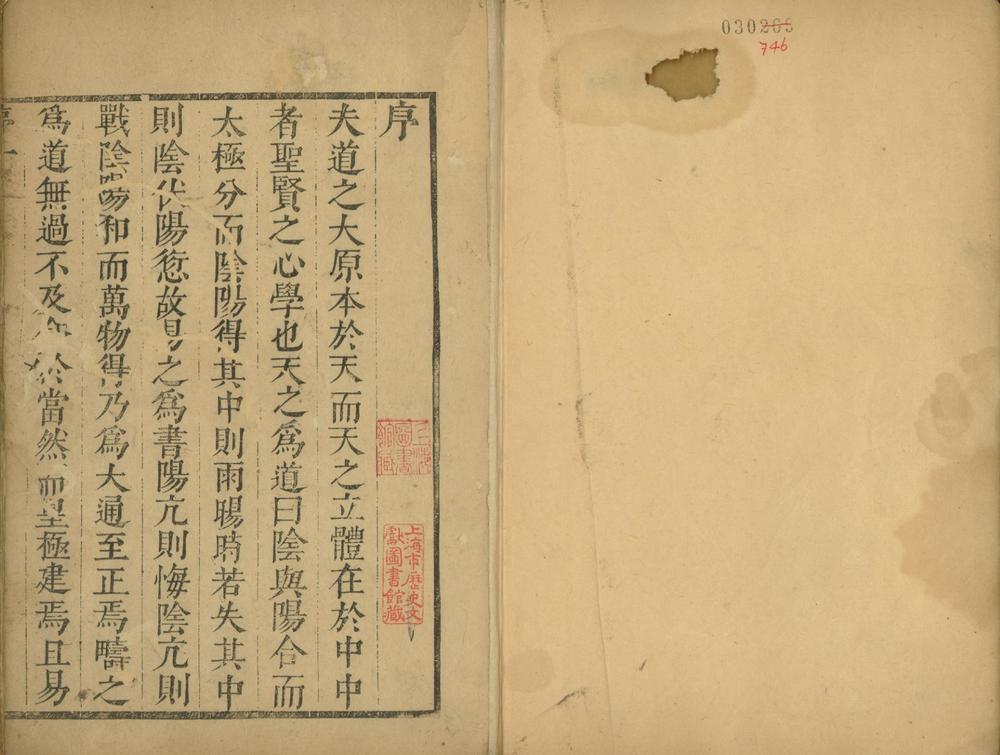 030263
746
序
夫道之大原本於天而天之立體在於中中
者聖賢之心學也天之爲道曰陰與陽合而
太極分而陰陽得其中則雨暘時若失其中
則陰伏陽愆故易之爲書陽亢則悔陰亢則
戰陰陽和而萬物得乃爲大通至正焉疇之
爲道無過不及於當然而皇極建焉且易
序一
上海圖書館藏
上海市歷史文獻圖書館藏